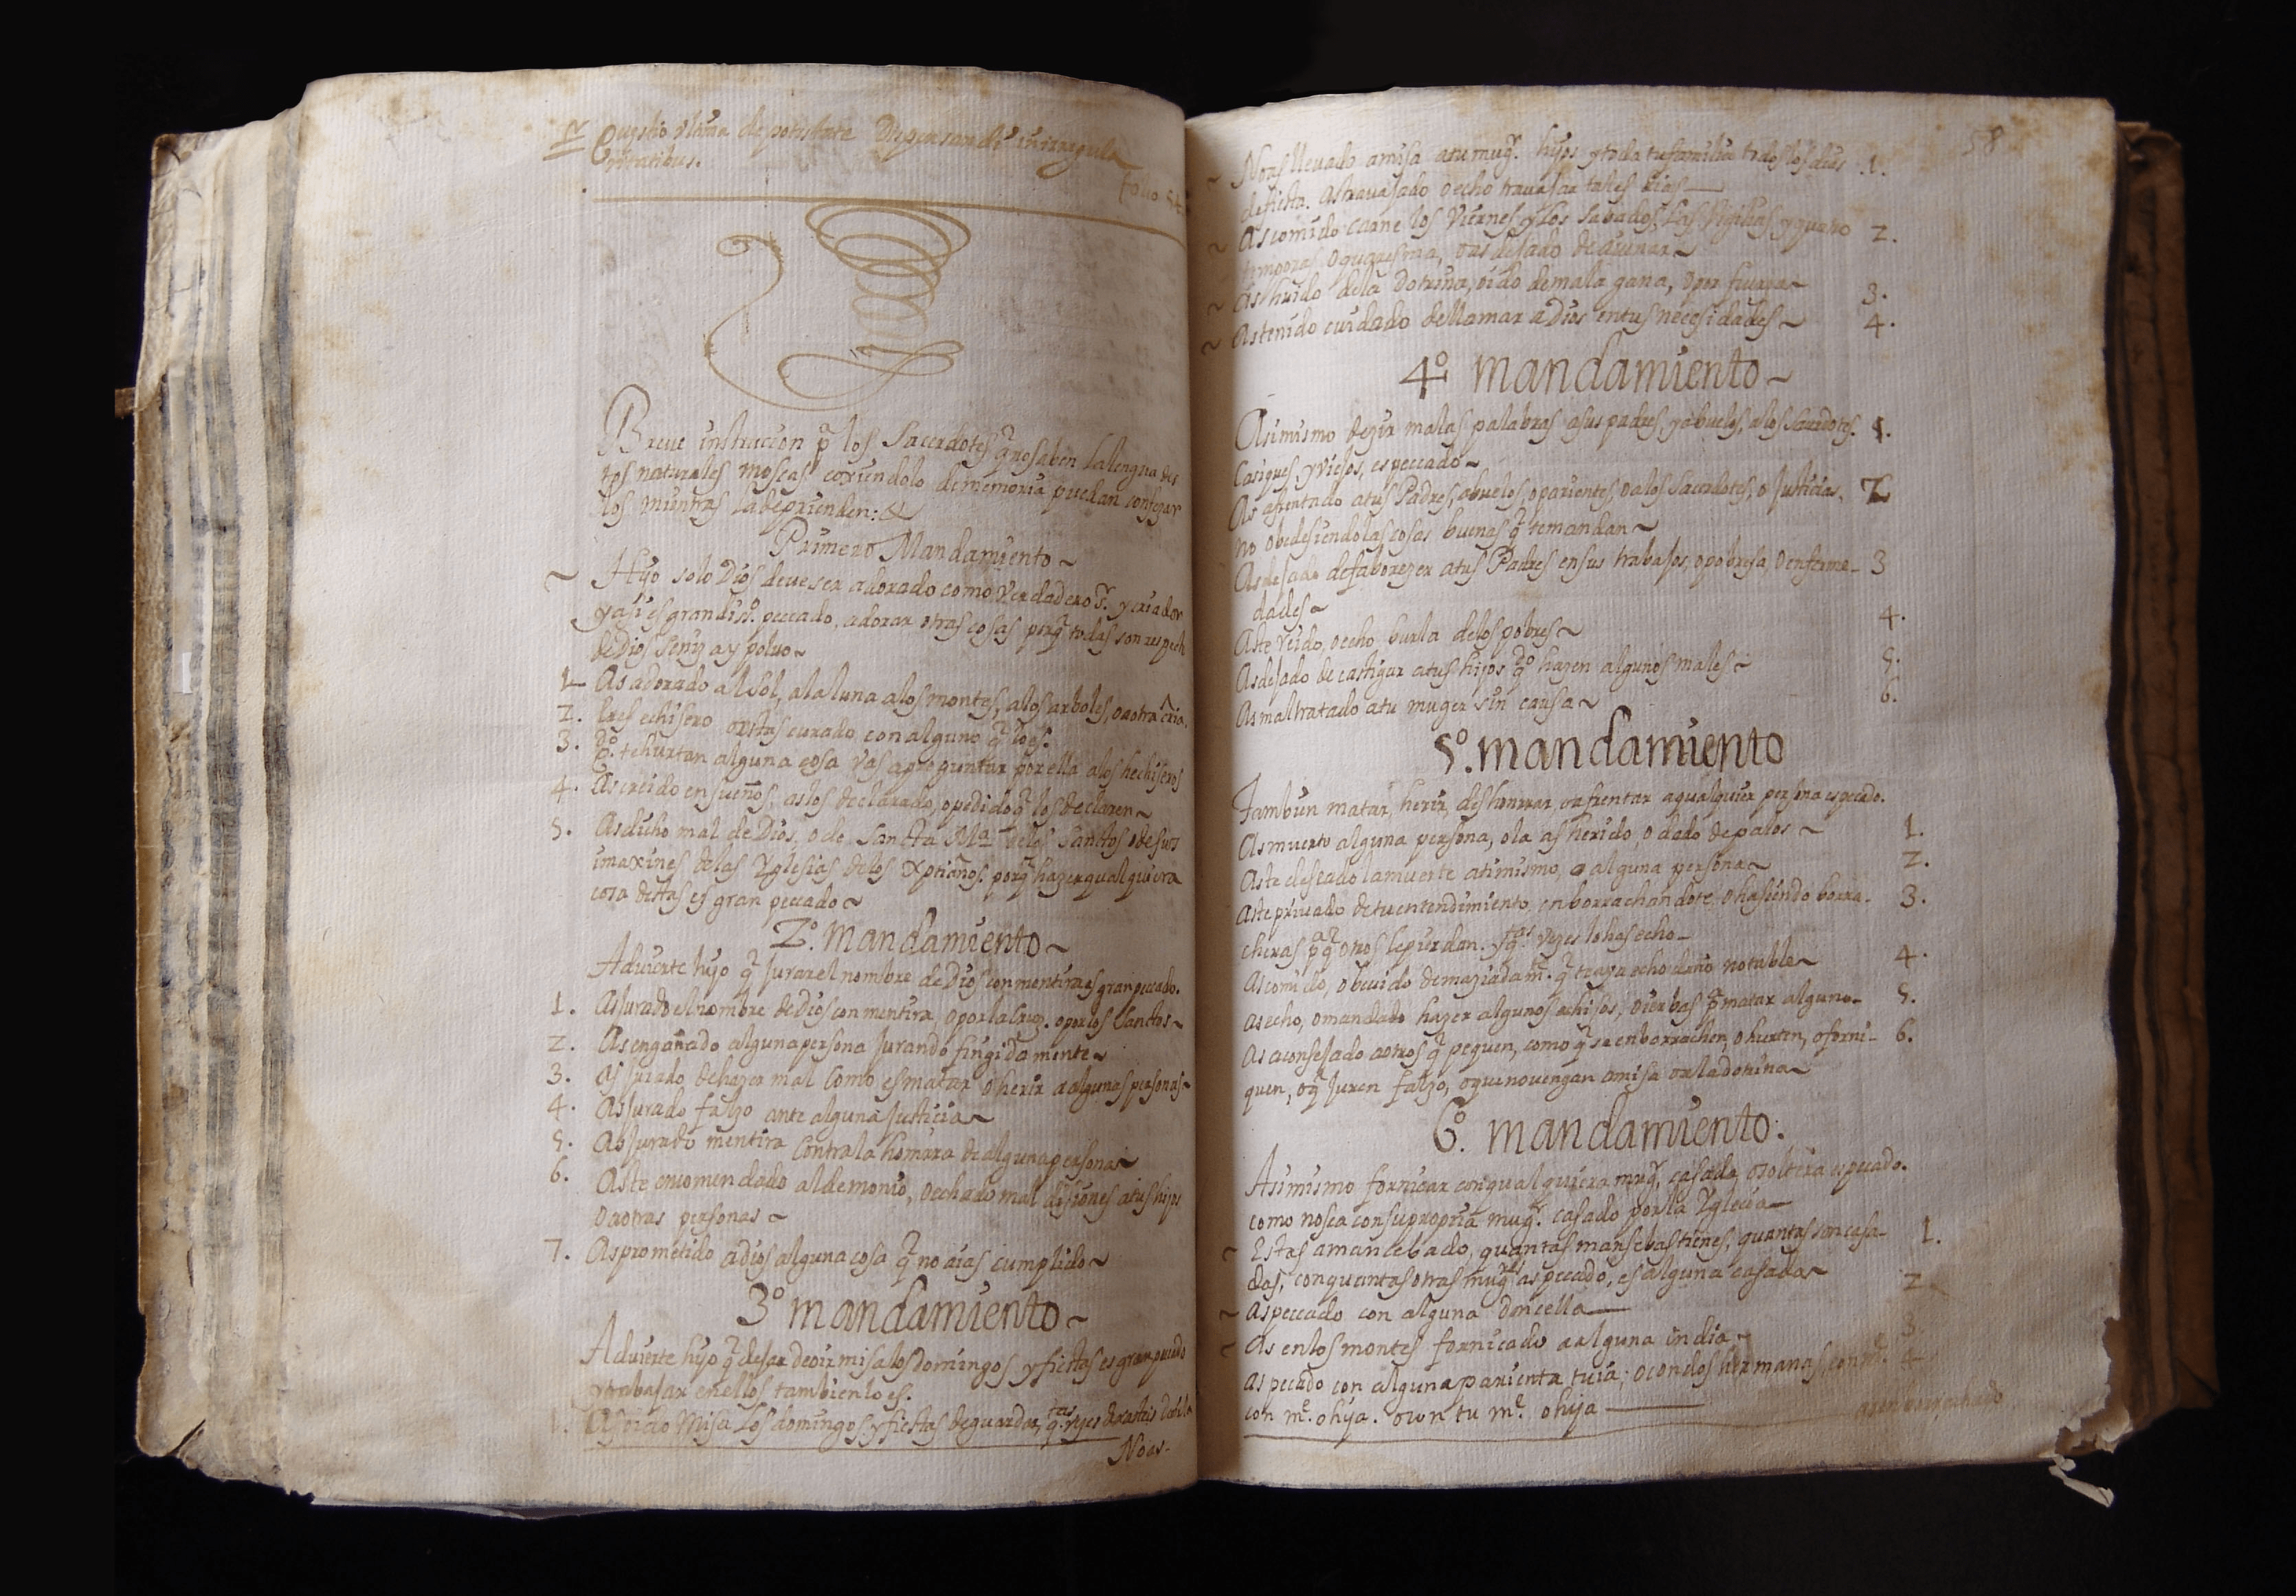 Questio vltima de potestate Dispensandi in irregula
ritatibus.
folio 54
Breve instruccion pª los Sacerdotes q̃ no saben la lengua des
tos naturales moscas coxiendolo de memoria puedan confesar
los mientras la deprienden:
Primero Mandamiento~
~ Hijo solo Dios deve ser adorado como Verdadero Sʳ. y criador
y asi es grandisº. peccado, adorar otras cosas porq̃ todas son respecto
de Dios seniza y polvo~
1 As adorado al sol, a la luna a los montes, a los arboles, o a otra cria.
2. Eres echisero o estas curado con alguno q̃ lo es.
3. qº. te hurtan alguna cosa vas a preguntar por ella a los hechiseros
4. As creido en sueños, as los declarado, o pedido q̃ los declaren~
5. As dicho mal de Dios, o de Sancta Mª de los Sanctos o de sus
imaxines de las Yglesias de los Xptianos. porq̃ hazer qualquiera
cosa destas es gran peccado~
2º. mandamiento~
Advierte hijo q̃ Jurar el nombre de Dios con mentira es gran peccado.
1. As Jurado el nombre de Dios con mentira o por la Cruz. o por los Sanctos~
2. As engañado alguna persona Jurando fingida mente~
3. As jurado de hazer mal como es matar o herir a algunas personas~
4. As Jurado falzo ante alguna Justicia~
5. As Jurado mentira Contra la honrra de alguna persona~
6. As te encomendado al demonio, o echado mal disiones a tus hijos
o a otras personas~
7. As prometido a dios alguna cosa q̃ no aias cumplido~
3º mandamiento~
Advierte hijo q̃ dejar de oir misa los domingos y fiestas es gran peccado
y trabajar en ellos tambien lo es.
1. As oido Misa Los domingos y fiestas de guardar, qᵗᵃˢ vezes
Noas-
58
~ No as llevado a misa a tu mugʳ. hijos y toda tu familia todos los dias 1.
de fiesta. as travajado o echo travajar tales dias—
~ As comido carne los Viernes y los sabados, las Vigilias y quatro 2.
temporas, o quaresma, o as dejado de aiunar~
~ As huido de la dotrina, oido de mala gana, o por fuerza~ 3.
~ As tenido cuidado de llamar a Dios en tus necesidades~ 4.
4º mandamiento~
Asimismo dezir malas palabras a sus padres, y abuelos, a los Sacerdotes. 1.
Casiques, y viejos, es peccado~
As afrentado a tus Padres, abuelos, o parientes, o a los Sacerdotes, o Justicias, 2
no obedesiendo las cosas buenas q̃ te mandan~
As dejado de faborezer a tus Padres en sus trabajos, o pobresa, o enferme- 3
dades~
As te reido, o echo burla de los pobres~ 4.
As dejado de castigar a tus hijos qº hazen algunos males~ 5.
As maltratado a tu muger sin causa~ 6.
5º. mandamiento
Tambien matar, herir, deshonrrar, o afrentar a qualquier persona es peccado.
As muerto alguna persona, o la as herido, o dado de palos~ 1.
As te deseado la muerte a ti mismo, o alguna persona~ 2.
As te privado de tu entendimiento, enborrachandote, o hasiendo borra- 3.
cheras pª q̃ otros se pierdan. y qᵗᵃˢ vezes lo has echo-
As comido, o bevido demaziadamᵉ. q̃ te aya echo daño notable~ 4.
As echo, o mandado hazer algunos echisos, o ierbas pª matar alguno- 5.
As aconsejado a otros q̃ pequen, como q̃ se enborrachen, o hurten, o forni- 6.
quen, o q̃ Juren falzo, o que no vengan a misa o a la dotrina~
6º. mandamiento.
Asimismo fornicar con qualquiera mugʳ, casada, o soltera es peccado.
como no sea con su propria mugʳ. casado por la Yglecia—
~ Estas amancebado, quantas mansebas tienes, quantas son casa- 1.
das, con quantas otras mugʳᵉˢ as peccado, es alguna casada~
~ As peccado con alguna doncella— 2
~ As en los montes fornicado a alguna india~ 3
As pecado con alguna parienta tuia; o con dos hermanas, con mᵉ. 4
con mᵉ. o hija. o con tu mᵉ. o hija —